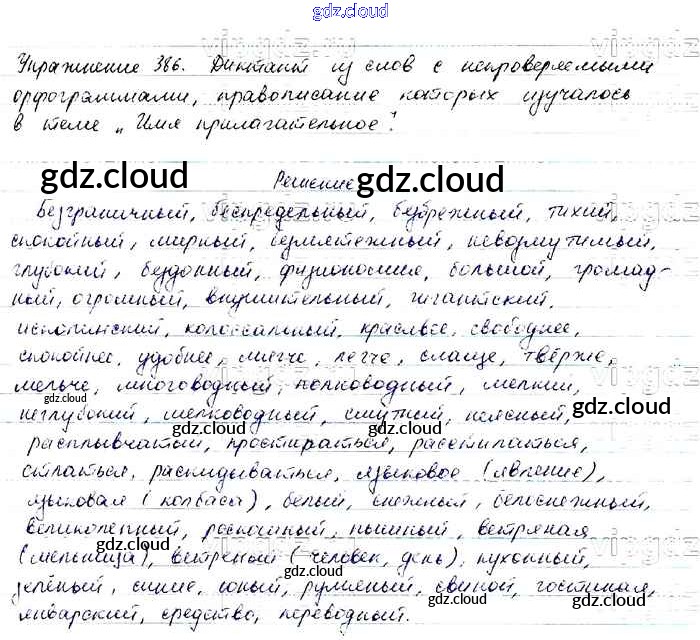 gdz.cloud
Упражнение 386. Диктант из слов с непроверяемыми
орфограммами, правописание которых изучалось
в теме „Имя прилагательное".
gdz.cloud
Решение
gdz.cloud
Безграничный, беспредельный, безбрежный, тихий,
спокойный, мирный, безмятежный, невозмутимый,
глубокий, бездонный, физиономия, большой, громад-
ный, огромный, внушительный, гигантский,
исполинский, колоссальный, красивее, свободнее,
спокойнее, удобнее, мягче, легче, слаще, твёрже,
мельче, многоводный, полноводный, мелкий,
gdz.cloud
gdz.cloud
неглубокий, мелководный, смутный, неясный,
gdz.cloud
gdz.cloud
расплывчатый, простираться, расстилаться,
стлаться, раскидываться, языковое (явление),
языковая (колбаса), белый, снежный, белоснежный,
великолепный, роскошный, пышный, ветряная
(мельница), ветреный (человек, день), кухонный,
gdz.cloud
gdz.cloud
зелёный, синие, юный, румяный, свиной, гостиная,
январский, средство, переводный.